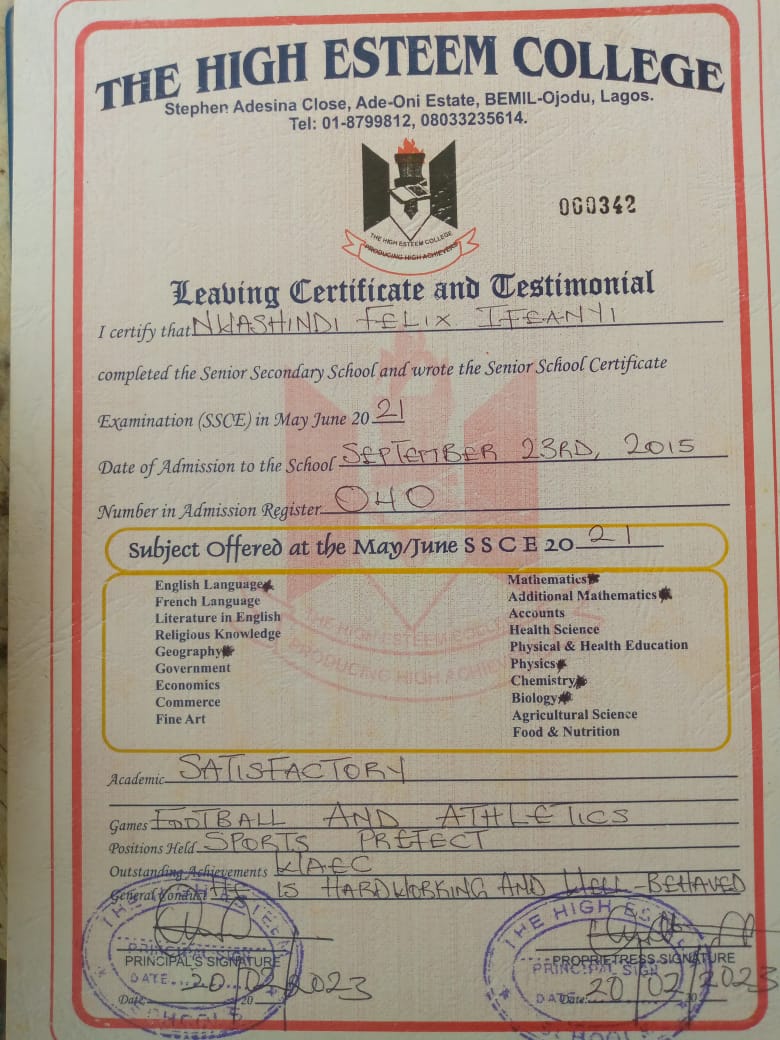 THE HIGH ESTEEM COLLEGE
Stephen Adesina Close, Ade-Oni Estate, BEMIL-Ojodu, Lagos.
Tel: 01-8799812, 08033235614.
000342
THE HIGH ESTEEM COLLEGE
PRODUCING HIGH ACHIEVERS
Leaving Certificate and Testimonial
I certify that NWASHINDI FELIX IFEANYI
completed the Senior Secondary School and wrote the Senior School Certificate
Examination (SSCE) in May June 20 21
Date of Admission to the School SEPTEMBER 23RD, 2015
Number in Admission Register 040
Subject Offered at the May/June S S C E 20 21
English Language
French Language
Literature in English
Religious Knowledge
Geography
Government
Economics
Commerce
Fine Art
Mathematics
Additional Mathematics
Accounts
Health Science
Physical & Health Education
Physics
Chemistry
Biology
Agricultural Science
Food & Nutrition
THE HIGH ESTEEM COLLEGE
PRODUCING HIGH ACHIEVERS
Academic SATISFACTORY
Games FOOTBALL AND ATHLETICS
Positions Held SPORTS PREFECT
Outstanding Achievements WAEC
General Conduct HE IS HARDWORKING AND WELL-BEHAVED
PRINCIPAL'S SIGNATURE
Date 20/02/2023
PROPRIETRESS SIGNATURE
Date: 20/02/2023
THE HIGH ESTEEM
PRINCIPAL SIGN
DATE
SCHOOLS
THE HIGH ES
PRINCIPAL SIGN
DATE
SCHOOLS